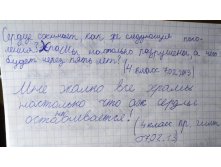 Сердце сжимает, как же следующие поко-
ления? Храмы настолько разрушены, а что
будет через пять лет?
(4 класс 702.23)
Мне жалко все храмы
настолько что аж сердце
останавливается!
(4 класс пр. гимн
702.23)